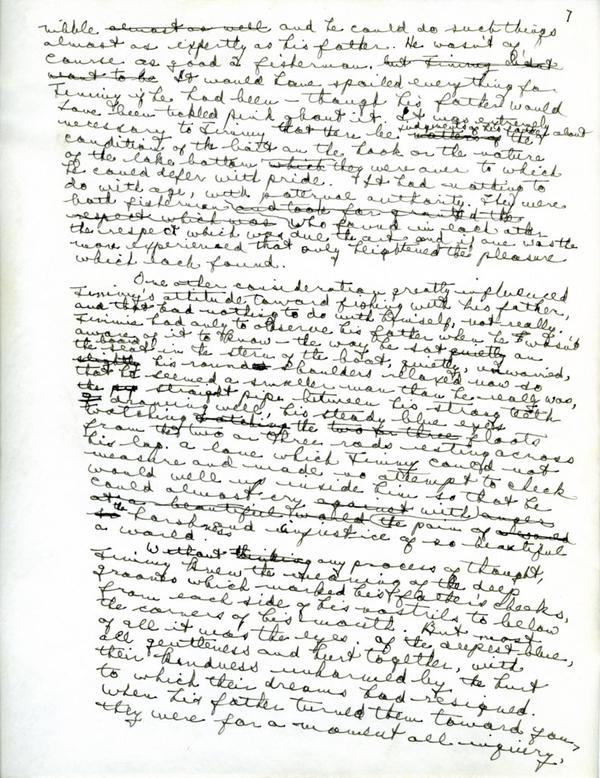 7
nibble almost as well and he could do such things
almost as expertly as his father. He wasn't of
course as good a fisherman. but Timmy didn't
want to be It would have spoiled everything for
Timmy if he had been — though his father would
have been tickled pink about it. It was extremely
necessary to Timmy that there be judgments of his father's about
matters of the
condition of the bait on the hook or the nature
of the lake bottom which they were over to which
he could defer with pride. It had nothing to
do with age, with paternal authority. They were
both fisherman and took for granted the
respect which was who found in each other
the respect which was due the art and if one was the
more experienced that only heightened the pleasure
which each found.
One other consideration greatly influenced
Timmy's attitude toward fishing with his father,
and that had nothing to do with himself, not really.
Timmie had only to observe his father when he wasn't
aware of it to know — the way he sat quietly on
the seat in the stern of the boat, quietly, unworried,
slightly his round shoulders relaxed now so
that he seemed a smaller man than he really was,
the straight pipe between his strong teeth
drawing well, his steady blue eyes
watching the two or three floats
from the two or three rods resting across
his lap. a love which Timmy could not
measure and made no attempt to check
would well up inside him so that he
could almost cry against with anger
at a beautiful world the pain of
the harshness and injustice of so beautiful
a world.
Without thinking any process of thought,
Timmy knew the meaning of the deep
grooves which marked his father's cheeks,
from each side of his nostrils to below
the corners of his mouth. But most
of all it was the eyes. of the deepest blue,
all gentleness and hurt together, with
their kindness unharmed by the hurt
to which their dreams had resigned.
When his father turned them toward you,
they were for a moment all inquiry,